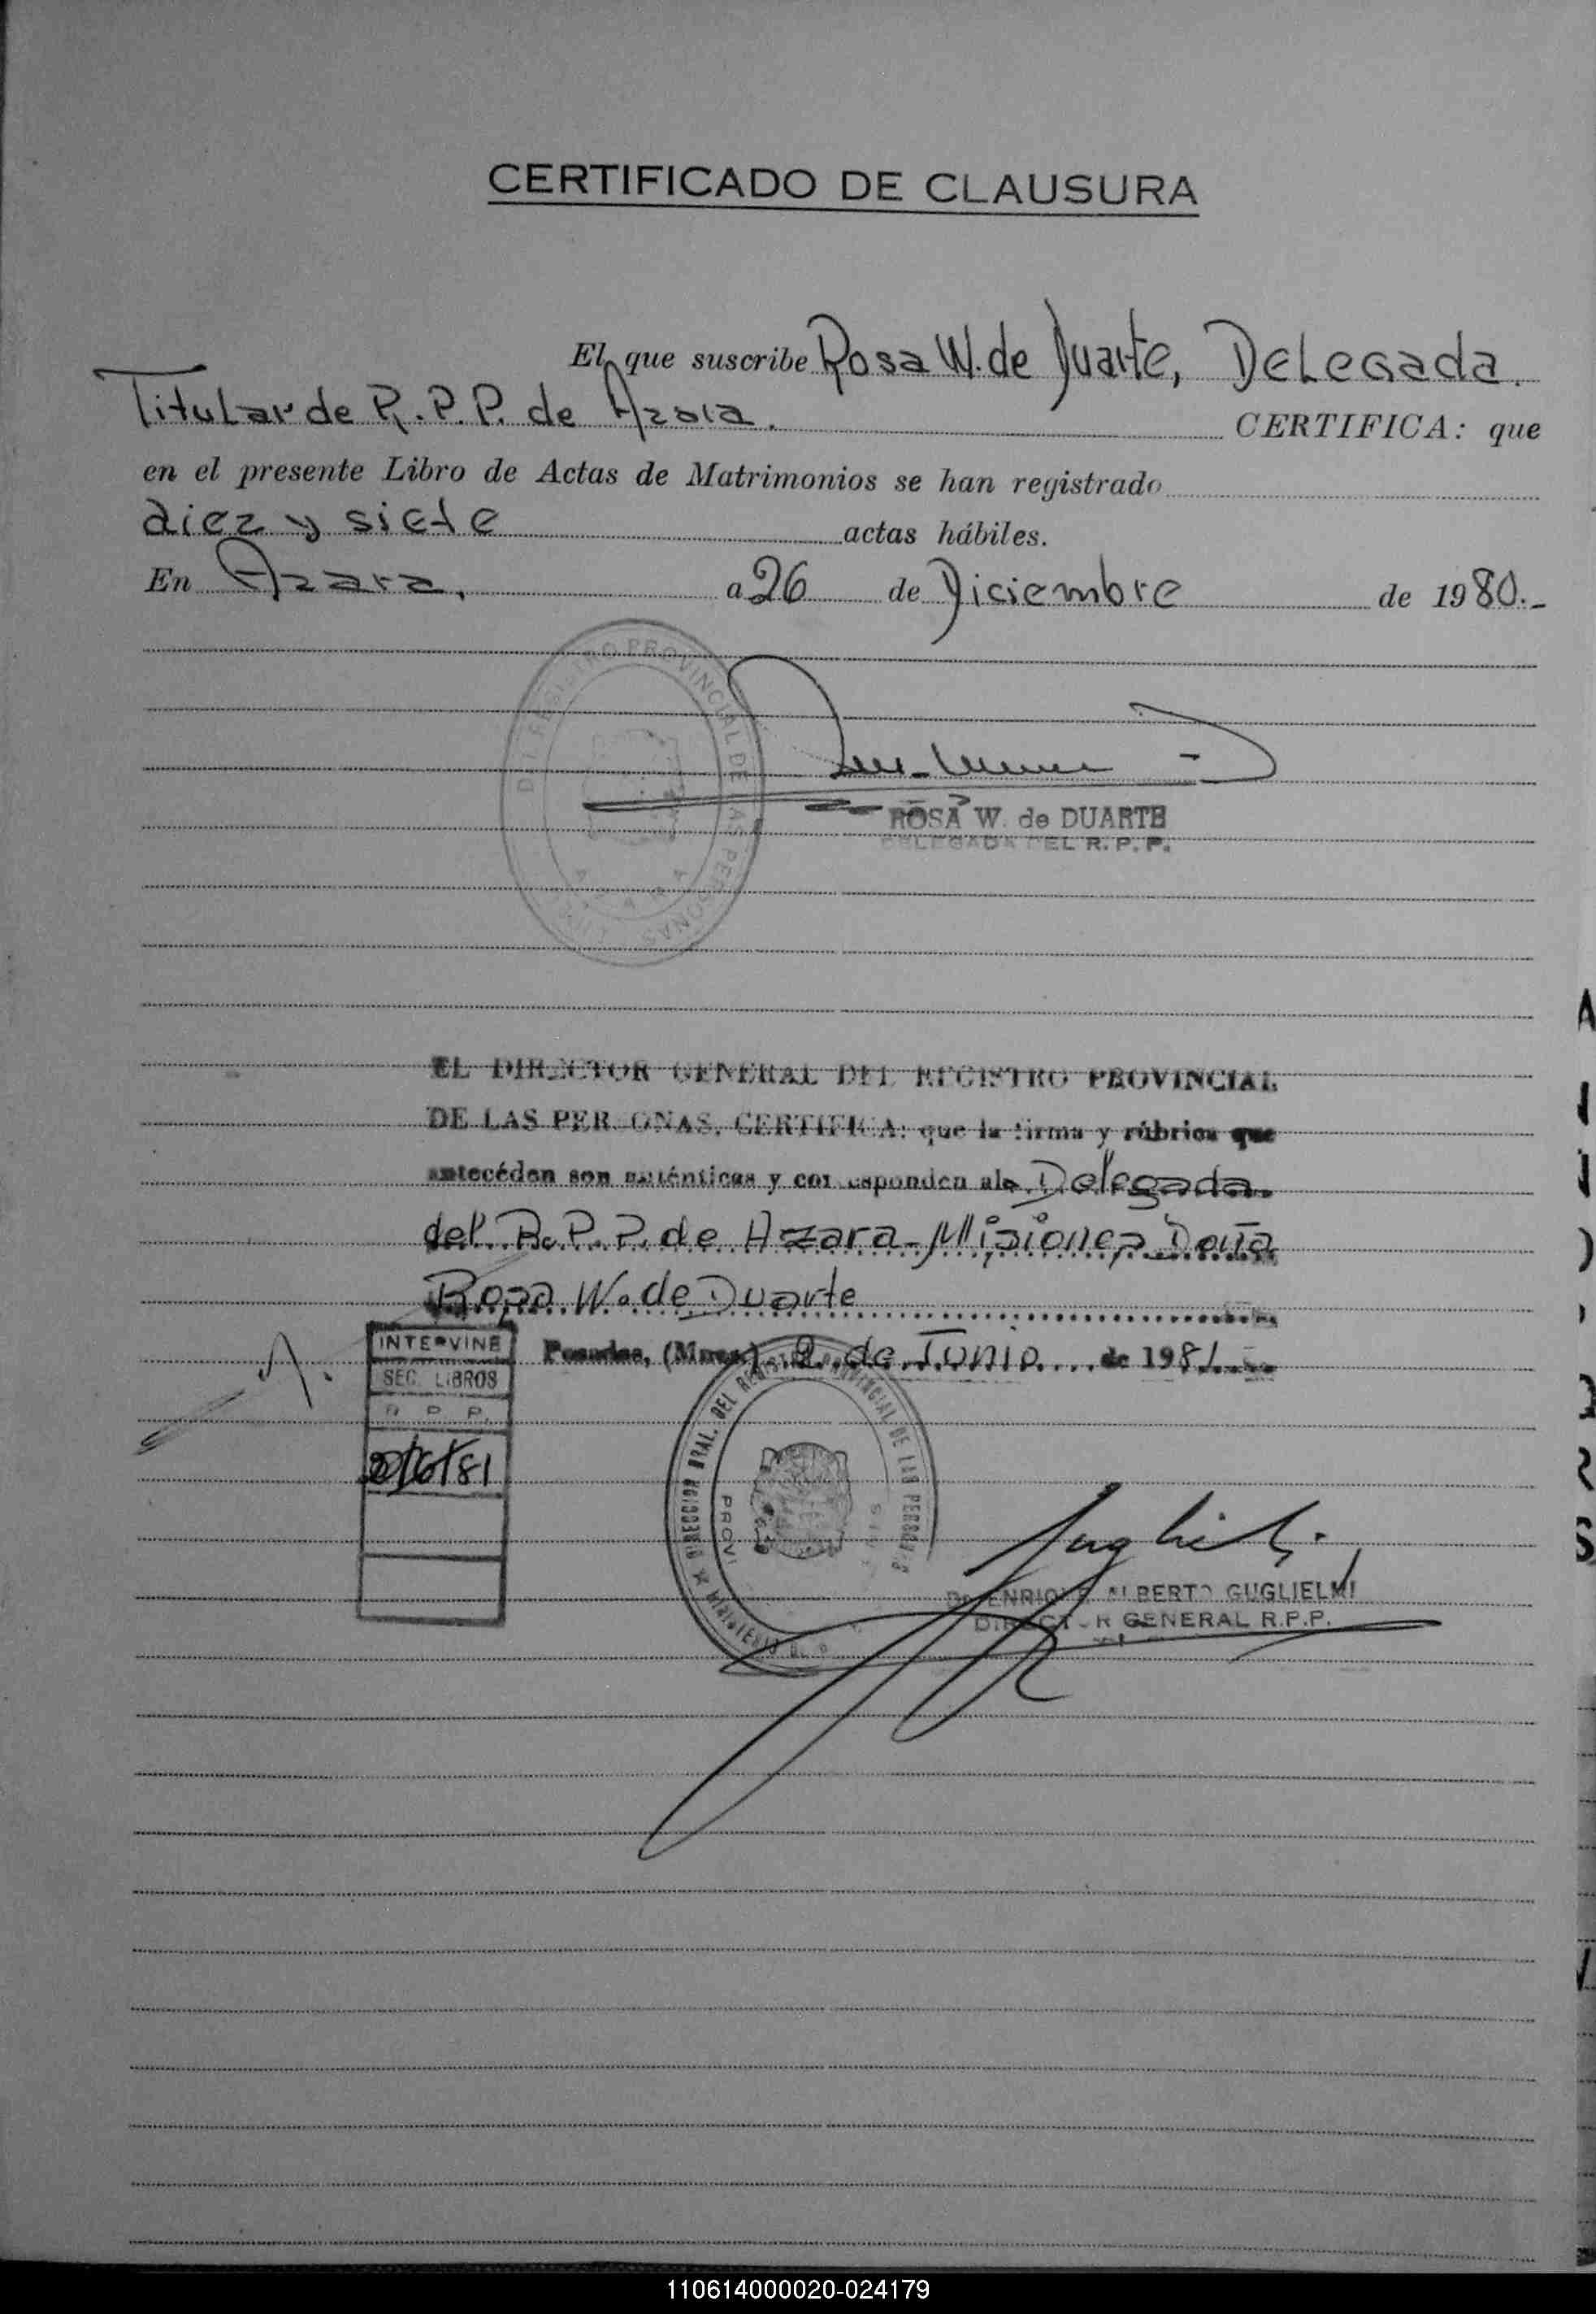 CERTIFICADO DE CLAUSURA
El que suscribe Rosa W. de Duarte, Delegada
Titular de R.P.P. de Azara. CERTIFICA: que
en el presente Libro de Actas de Matrimonios se han registrado
diez y siete actas hábiles.
En Azara, a 26 de Diciembre de 1980.-
REGISTRO PROVINCIAL DE LAS PERSONAS
ROSA W. de DUARTE
DELEGADA DEL R.P.P.
EL DIRECTOR GENERAL DEL REGISTRO PROVINCIAL
DE LAS PERSONAS, CERTIFICA: que la firma y rúbrica que
antecéden son auténticas y corresponden a la Delegada
del R.P.P. de Azara-Misiones Doña
Rosa W. de Duarte
INTERVINE
SEC. LIBROS
R P P.
Posadas, (Mnes.) 2 de Junio de 1981
2/6/81
DIRECCION GRAL. DEL REGISTRO PROVINCIAL DE LAS PERSONAS
Dr. ENRIQUE ALBERTO GUGLIELMI
DIRECTOR GENERAL R.P.P.
110614000020-024179